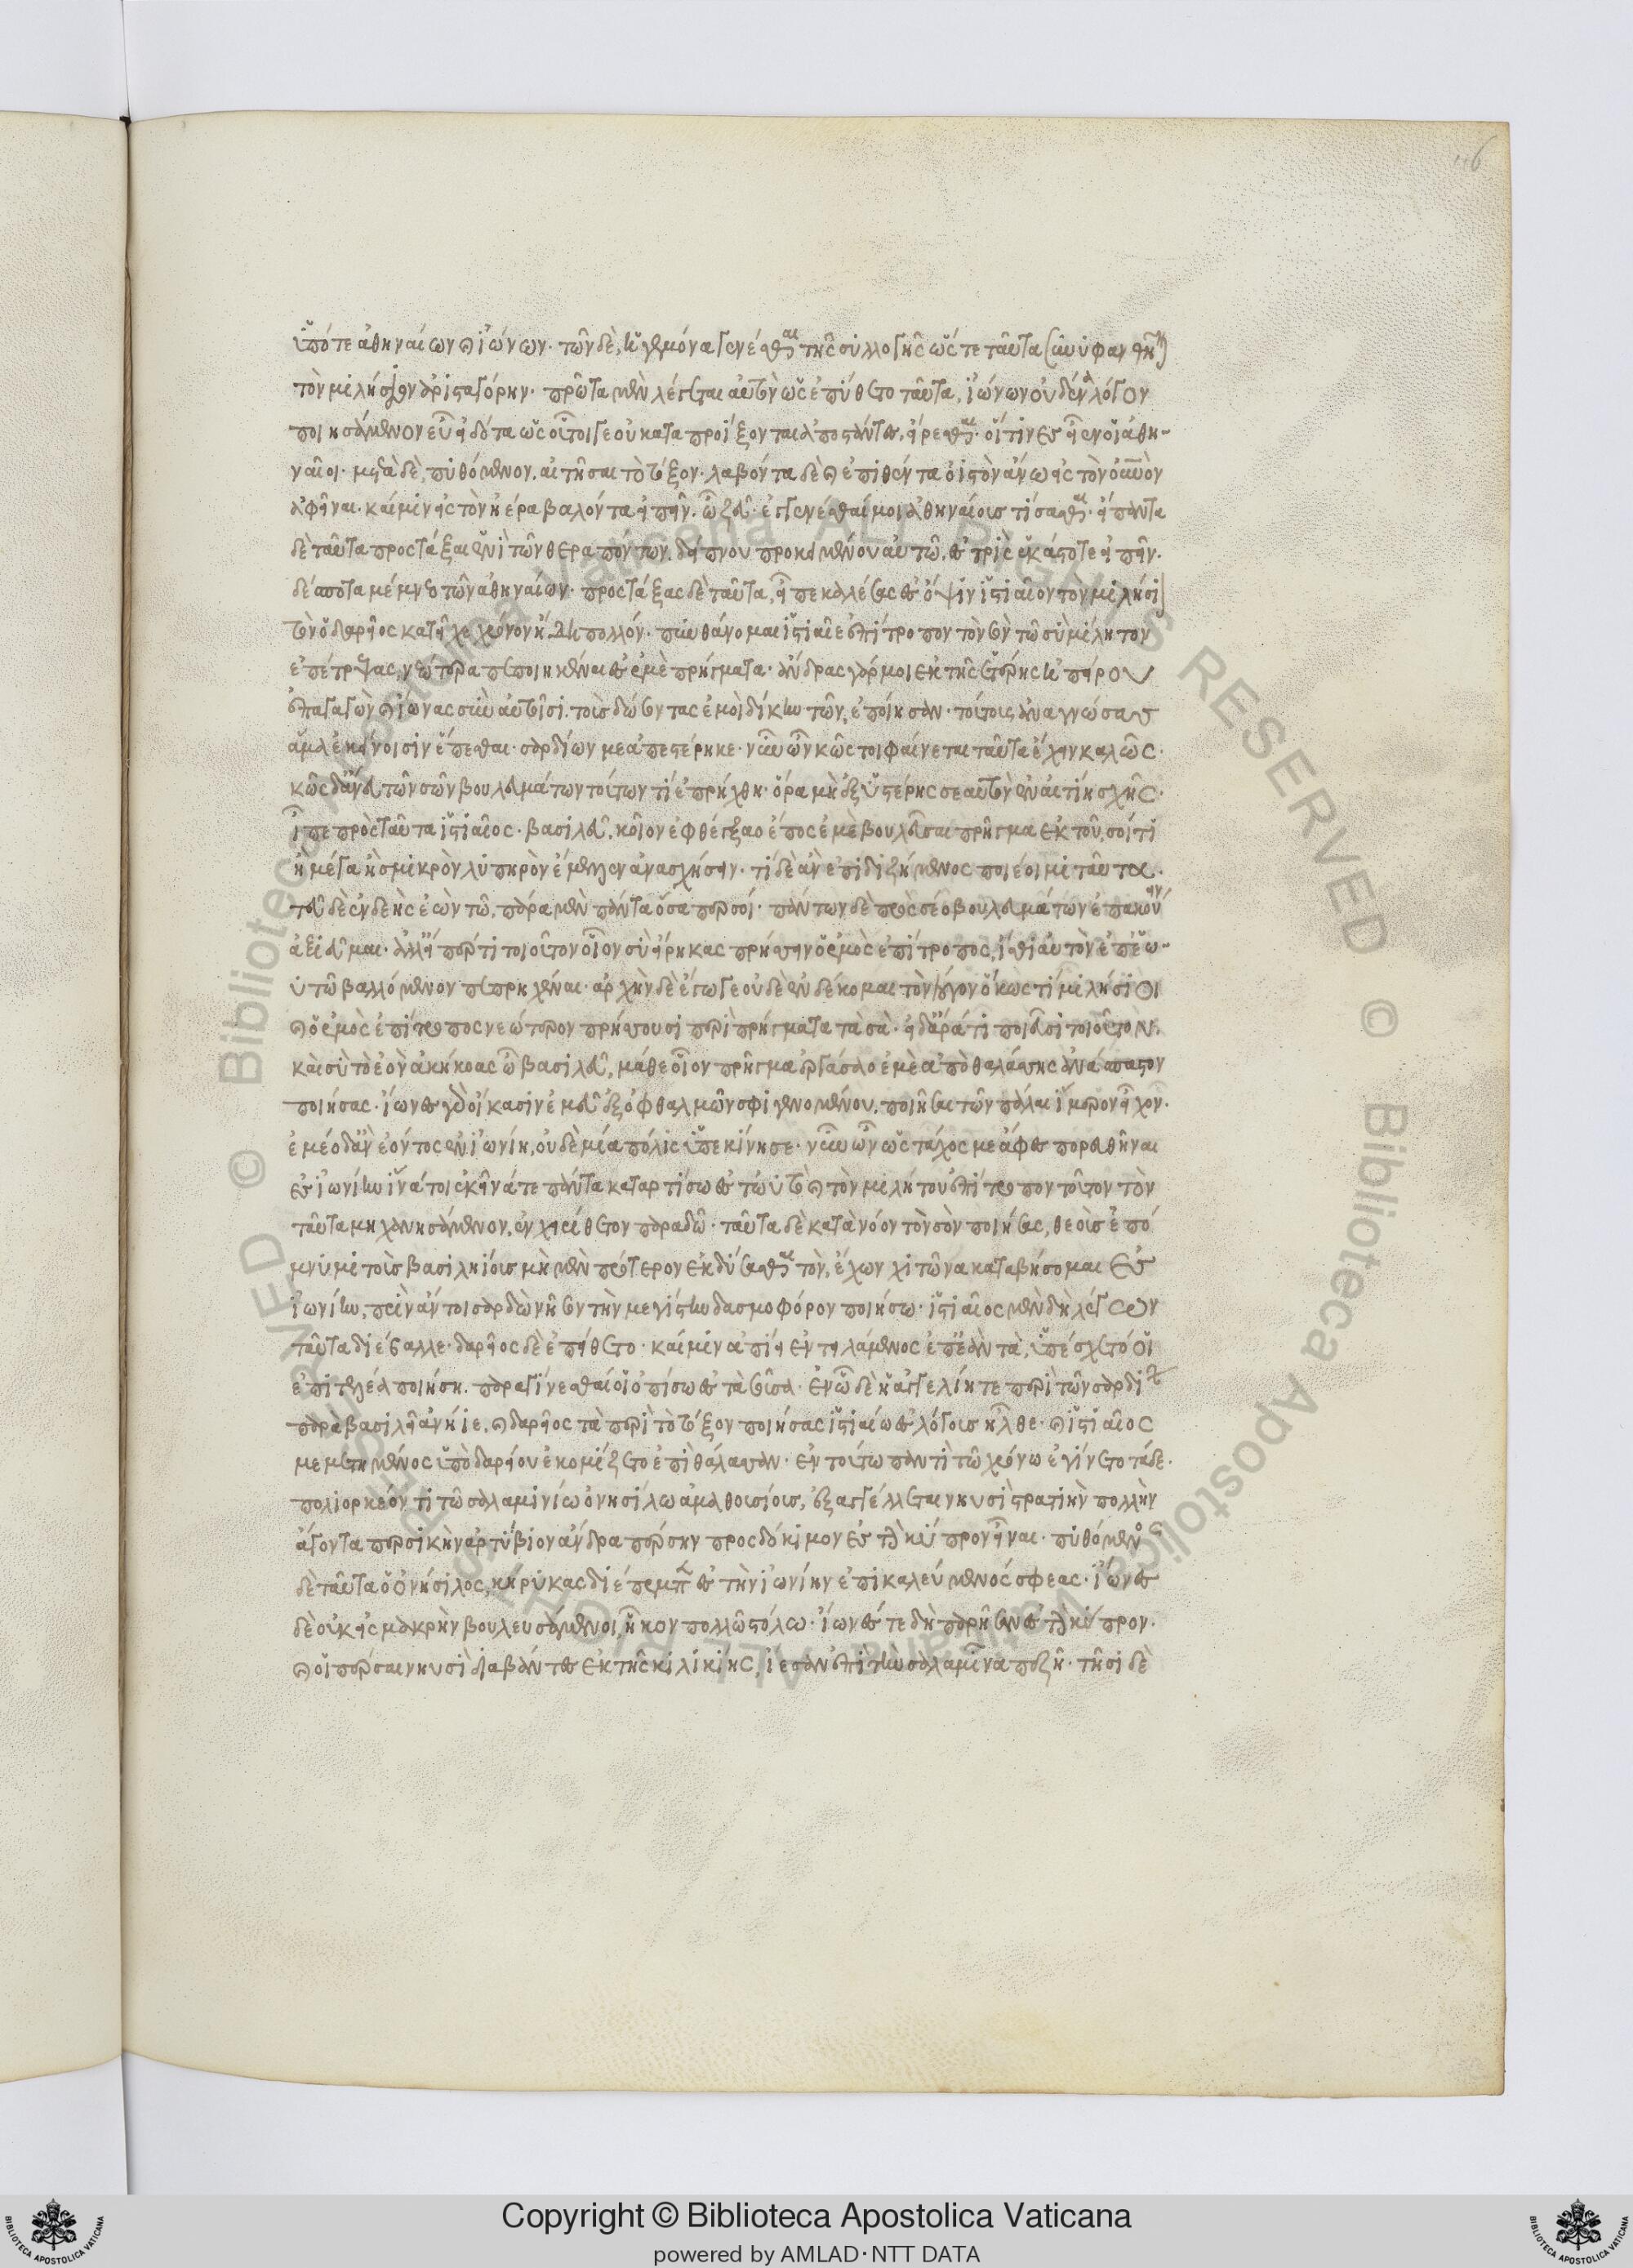 ὑπό τε ἀθηναίων καὶ ἰώνων. τὸν δὲ ἡγεμόνα γενέσθαι τῆς συλλογῆς ὥς τε ταῦτα συνυφανθῆναι
τὸν μιλήσιον ἀρισταγόρην. πρῶτα μὲν λέγεται αὐτὸν ὡς ἐπύθετο ταῦτα, ἰώνων οὐδένα λόγον
ποιησάμενον εὖ εἰδότα ὡς οὗτοί γε οὐ καταπροΐξονται ἀποστάντες, εἴρεσθαι οἵτινες εἶεν οἱ ἀθη-
ναῖοι. μετὰ δὲ πυθόμενον, αἰτῆσαι τὸ τόξον. λαβόντα δὲ καὶ ἐπιθέντα ὀϊστὸν ἄνω ἐς τὸν οὐρανὸν
ἀφεῖναι. καί μιν ἐς τὸν ἠέρα βαλόντα εἰπεῖν. ὦ ζεῦ. ἐκγενέσθαί μοι ἀθηναίοις τίσασθαι. εἴπαντα
δὲ ταῦτα προστάξαι ἑνὶ τῶν θεραπόντων. δείπνου προκειμένου αὐτῷ, ἐς τρὶς ἑκάστοτε εἰπεῖν.
δέσποτα μέμνεο τῶν ἀθηναίων. προστάξας δὲ ταῦτα, εἶπε καλέσας ἐς ὄψιν ἱστιαῖον τὸν μιλήσι
τὸν ὁ δαρεῖος κατεῖχε χρόνον ἤδη πολλόν. πυνθάνομαι ἱστιαῖε ἐπίτροπον τὸν σὸν τῷ σὺ μίλητον
ἐπέτρεψας, νεώτερα πεποιηκέναι ἐς ἐμὲ πρήγματα. ἄνδρας γάρ μοι ἐκ τῆς ἑτέρης ἠπείρου
ἐπαγαγὼν καὶ ἴωνας σὺν αὐτοῖσι τοῖς δώσοντας ἐμοὶ δίκην τῶν ἐποίησαν. τούτοις ἀναγνώσας
ἅμα ἐκείνοισιν ἕπεσθαι. σαρδίων με ἀπεστέρηκε. νῦν ὦν κῶς τοι φαίνεται ταῦτα ἔχειν καλῶς.
κῶς δ' ἄνευ τῶν σῶν βουλευμάτων τούτων τι ἐπρήχθη. ὅρα μὴ ἐξ ὑστέρης σεαυτὸν ἐν αἰτίῃ σχῇς.
εἶπε πρὸς ταῦτα ἱστιαῖος. βασιλεῦ, κοῖον ἐφθέγξαο ἔπος ἐμὲ βουλεῦσαι πρῆγμα ἐκ τοῦ, σοί τι
ἢ μέγα ἢ σμικρὸν λυπηρὸν ἔμελλεν ἀνασχήσειν. τί δὲ ἂν ἐπιδιζήμενος ποιέοιμι ταῦτα.
τεῦ δὲ ἐνδεὴς ἐὼν τῷ, πάρα μὲν πάντα ὅσα περ σοί. πάντων δὲ πρὸς σέο βουλευμάτων ἐπακούειν
ἀξιεῦμαι. ἀλλ' εἴ πέρ τι τοιοῦτον οἷον σὺ εἴρηκας πρήσσει ὁ ἐμὸς ἐπίτροπος, ἴσθι αὐτὸν ἐπ' ἑω-
υτῷ βαλλόμενον πεπρηχέναι. ἀρχὴν δὲ ἔγωγε οὐδὲ ἐνδέκομαι τὸν λόγον ὅκως τι μιλήσιοι
καὶ ὁ ἐμὸς ἐπίτροπος νεώτερον πρήσσουσι περὶ πρήγματα τὰ σά. εἰ δ' ἄρά τι ποιεῦσι τοιοῦτον
καὶ σὺ τὸ ἐὸν ἀκήκοας ὦ βασιλεῦ, μάθε οἷον πρῆγμα ἐργάσαο ἐμὲ ἀπὸ θαλάσσης ἀνάσπαστον
ποιήσας. ἴωνες γὰρ οἴκασιν ἐμεῦ ἐξ ὀφθαλμῶν σφι γενομένου, ποιῆσαι τῶν πάλαι ἵμερον εἶχον.
ἐμέο δ' ἂν ἐόντος ἐν ἰωνίῃ, οὐδεμία πόλις ὑπεκίνησε. νῦν ὦν ὡς τάχος με ἄφες πορευθῆναι
ἐς ἰωνίην ἵνα τοι ἐκεῖνά τε πάντα καταρτίσω ἐς τὠυτὸ καὶ τὸν μιλήτου ἐπίτροπον τοῦτον τὸν
ταῦτα μηχανησάμενον, ἐγχειρίθετον παραδῶ. ταῦτα δὲ κατὰ νόον τὸν σὸν ποιήσας, θεοὺς ἐπό
μνυμι τοὺς βασιληίους μὴ μὲν πρότερον ἐκδύσασθαι τὸν ἔχων κιθῶνα καταβήσομαι ἐς
ἰωνίην, πρὶν ἄν τοι σαρδὼ νῆσον τὴν μεγίστην δασμοφόρον ποιήσω. ἱστιαῖος μὲν δὴ λέγων
ταῦτα διέβαλλε. δαρεῖος δὲ ἐπείθετο. καί μιν ἀπίει ἐντειλάμενος ἐπεὰν τὰ, ὑπέσχετό οἱ
ἐπιτελέα ποιήσῃ. παραγίνεσθαί οἱ ὀπίσω ἐς τὰ σοῦσα. ἐν ᾧ δὲ ἡ ἀγγελίη τε περὶ τῶν σαρδί
παρὰ βασιλῆ ἀνήιε, καὶ δαρεῖος τὰ περὶ τὸ τόξον ποιήσας ἱστιαίῳ ἐς λόγους ἦλθε. καὶ ἱστιαῖος
μεμετιμένος ὑπὸ δαρείου ἐκομίζετο ἐπὶ θάλασσαν. ἐν τούτῳ παντὶ τῷ χρόνῳ ἐγίνετο τάδε.
πολιορκέοντι τῷ σαλαμινίῳ ὀνησίλῳ ἀμαθουσίους, ἐξαγγέλλεται νηυσὶ στρατιὴν πολλὴν
ἄγοντα περσικὴν ἀρτύβιον ἄνδρα πέρσην προσδόκιμον ἐς τὴν κύπρον εἶναι. πυθόμενος
δὲ ταῦτα ὁ ὀνήσιλος, κήρυκας διέπεμπε ἐς τὴν ἰωνίην ἐπικαλεύμενός σφεας. ἴωνες
δὲ οὐκ ἐς μακρὴν βουλευσάμενοι, ἧκον πολλῷ στόλῳ. ἴωνές τε δὴ παρῆσαν ἐς τὴν κύπρον.
καὶ οἱ πέρσαι νηυσὶ διαβάντες ἐκ τῆς κιλικίης, ἤιεσαν ἐπὶ τὴν σαλαμῖνα πεζῇ. τῇσι δὲ